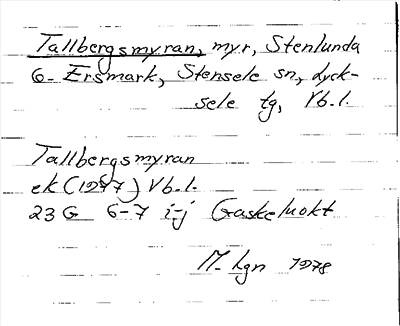 Tallbergsmyran, myr, Stenlunda
6- Ersmark, Stensele sn, Lyck-
sele tg, Vb.l.
Tallbergsmyran
ek (1977) Vb.l.
23 G 6-7 i-j Gaskeluokt
M. Lgn 1978